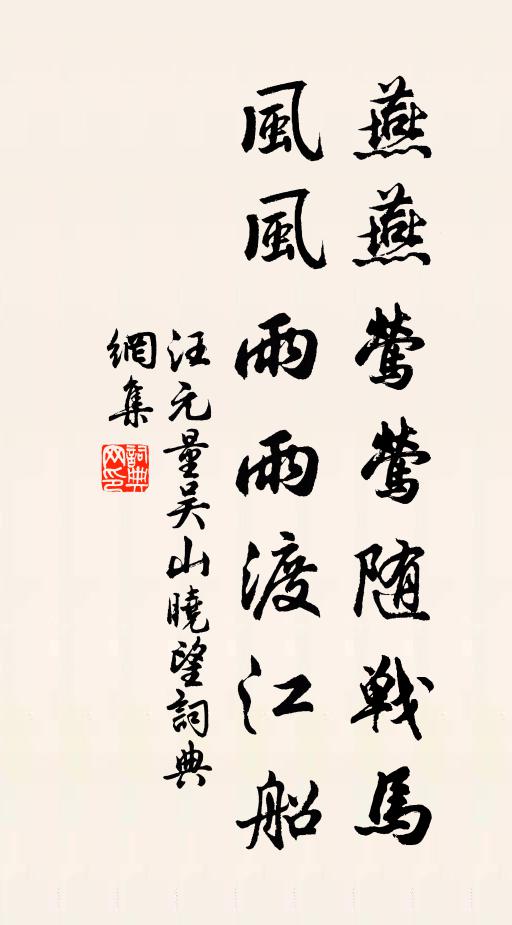 燕燕鶯鶯随戦馬
風風雨雨渡江船
汪元量吴山曉望詞典
網集
詞典网印